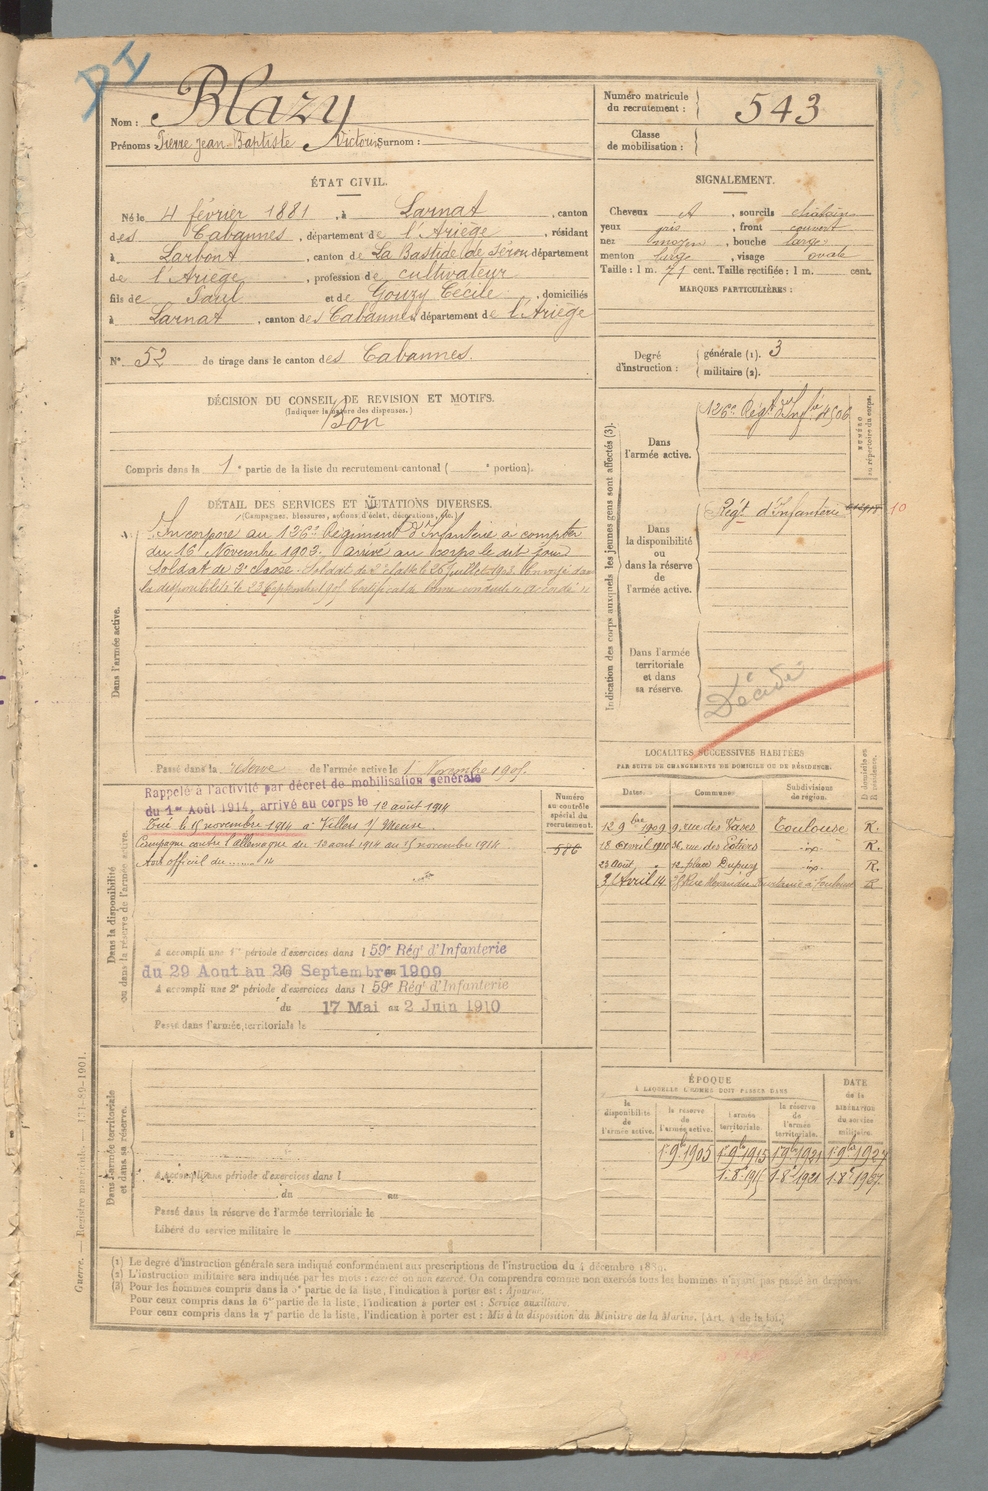 Nom : Blazy
Prénoms : Pierre Jean-Baptiste Victorin Surnom :
Numéro matricule du recrutement : 543
Classe de mobilisation :
ÉTAT CIVIL.
Né le 4 février 1881, à Larnat, canton
des Cabannes, département de l'Ariège, résidant
à Larbont, canton de La Bastide de Sérou département
de l'Ariège, profession de cultivateur
fils de Paul et de Gouzy Cécile, domiciliés
à Larnat, canton des Cabannes, département de l'Ariège
N° 52 de tirage dans le canton des Cabannes.
SIGNALEMENT.
Cheveux et, sourcils châtain
yeux gris, front couvert
nez moyen, bouche large
menton large, visage ovale
Taille : 1 m. 71 cent. Taille rectifiée : 1 m. cent.
MARQUES PARTICULIÈRES :
Degré d'instruction : générale (1). 3
militaire (2).
DÉCISION DU CONSEIL DE REVISION ET MOTIFS.
(Indiquer la nature des dispenses.)
Bon
Compris dans la 1e partie de la liste du recrutement cantonal ( e portion).
DÉTAIL DES SERVICES ET MUTATIONS DIVERSES.
(Campagnes, blessures, actions d'éclat, décorations, etc.)
Dans l'armée active.
Incorporé au 126e Régiment d'Infanterie à compter
du 16 Novembre 1902. arrivé au corps le dit jour
Soldat de 2e classe. Soldat de 1e classe le 26 Juillet 1903. Envoyé dans
la disponibilité le 23 Septembre Certificat de bonne conduite accordé
Passé dans la réserve de l'armée active le 1 Novembre 1905.
Dans la disponibilité ou dans la réserve de l'armée active.
Rappelé à l'activité par décret de mobilisation générale
du 1er Août 1914, arrivé au corps le 12 août 1914
Tué le 15 novembre 1914 à Villers s/ Meuse.
Campagne contre l'Allemagne du 12 août 1914 au 15 novembre 1914
Avis officiel du ........ 14
Numéro au contrôle spécial du recrutement.
586
A accompli une 1re période d'exercices dans l 59e Rég' d'Infanterie
du 29 Aout au 20 Septembre 1909
A accompli une 2e période d'exercices dans l 59e Rég' d'Infanterie
du 17 Mai au 2 Juin 1910
Passé dans l'armée territoriale le
Dans l'armée territoriale et dans sa réserve.
A accompli une période d'exercices dans l
du au
Passé dans la réserve de l'armée territoriale le
Libéré du service militaire le
Indication des corps auxquels les jeunes gens sont affectés (3).
Dans l'armée active.
126e Régt d'Infie 4506
NUMÉRO au répertoire du corps.
Dans la disponibilité ou dans la réserve de l'armée active.
Régt d'Infanterie
10
Dans l'armée territoriale et dans sa réserve.
Décédé
LOCALITÉS SUCCESSIVES HABITÉES
PAR SUITE DE CHANGEMENTS DE DOMICILE OU DE RÉSIDENCE.
Dates. Communes. Subdivisions de région. D domicile ou R résidence.
12 9bre 1909 9, rue des Vases Toulouse R.
18 Avril 1910 36, rue des Potiers -id- R.
23 Août " 12, place Dupuy -id- R.
3 Avril 14 Rue Toulouse R
ÉPOQUE
A LAQUELLE L'HOMME DOIT PASSER DANS
la disponibilité de l'armée active. la réserve de l'armée active. l'armée territoriale. la réserve de l'armée territoriale.
DATE de la LIBÉRATION du service militaire.
1er 9bre 1905 1er 9bre 1915 1er 9bre 1921 1er 9bre 1927
1-8e 1915 1-8e 1921 1-8e 1927
(1) Le degré d'instruction générale sera indiqué conformément aux prescriptions de l'instruction du 4 décembre 1889.
(2) L'instruction militaire sera indiquée par les mots : exercé ou non exercé. On comprendra comme non exercés tous les hommes n'ayant pas passé au drapeau.
(3) Pour les hommes compris dans la 5e partie de la liste, l'indication à porter est : Ajourné.
Pour ceux compris dans la 6e partie de la liste, l'indication à porter est : Service auxiliaire.
Pour ceux compris dans la 7e partie de la liste, l'indication à porter est : Mis à la disposition du Ministre de la Marine. (Art. 4 de la loi.)
Guerre. — Registre matricule. — 131-89-1901.